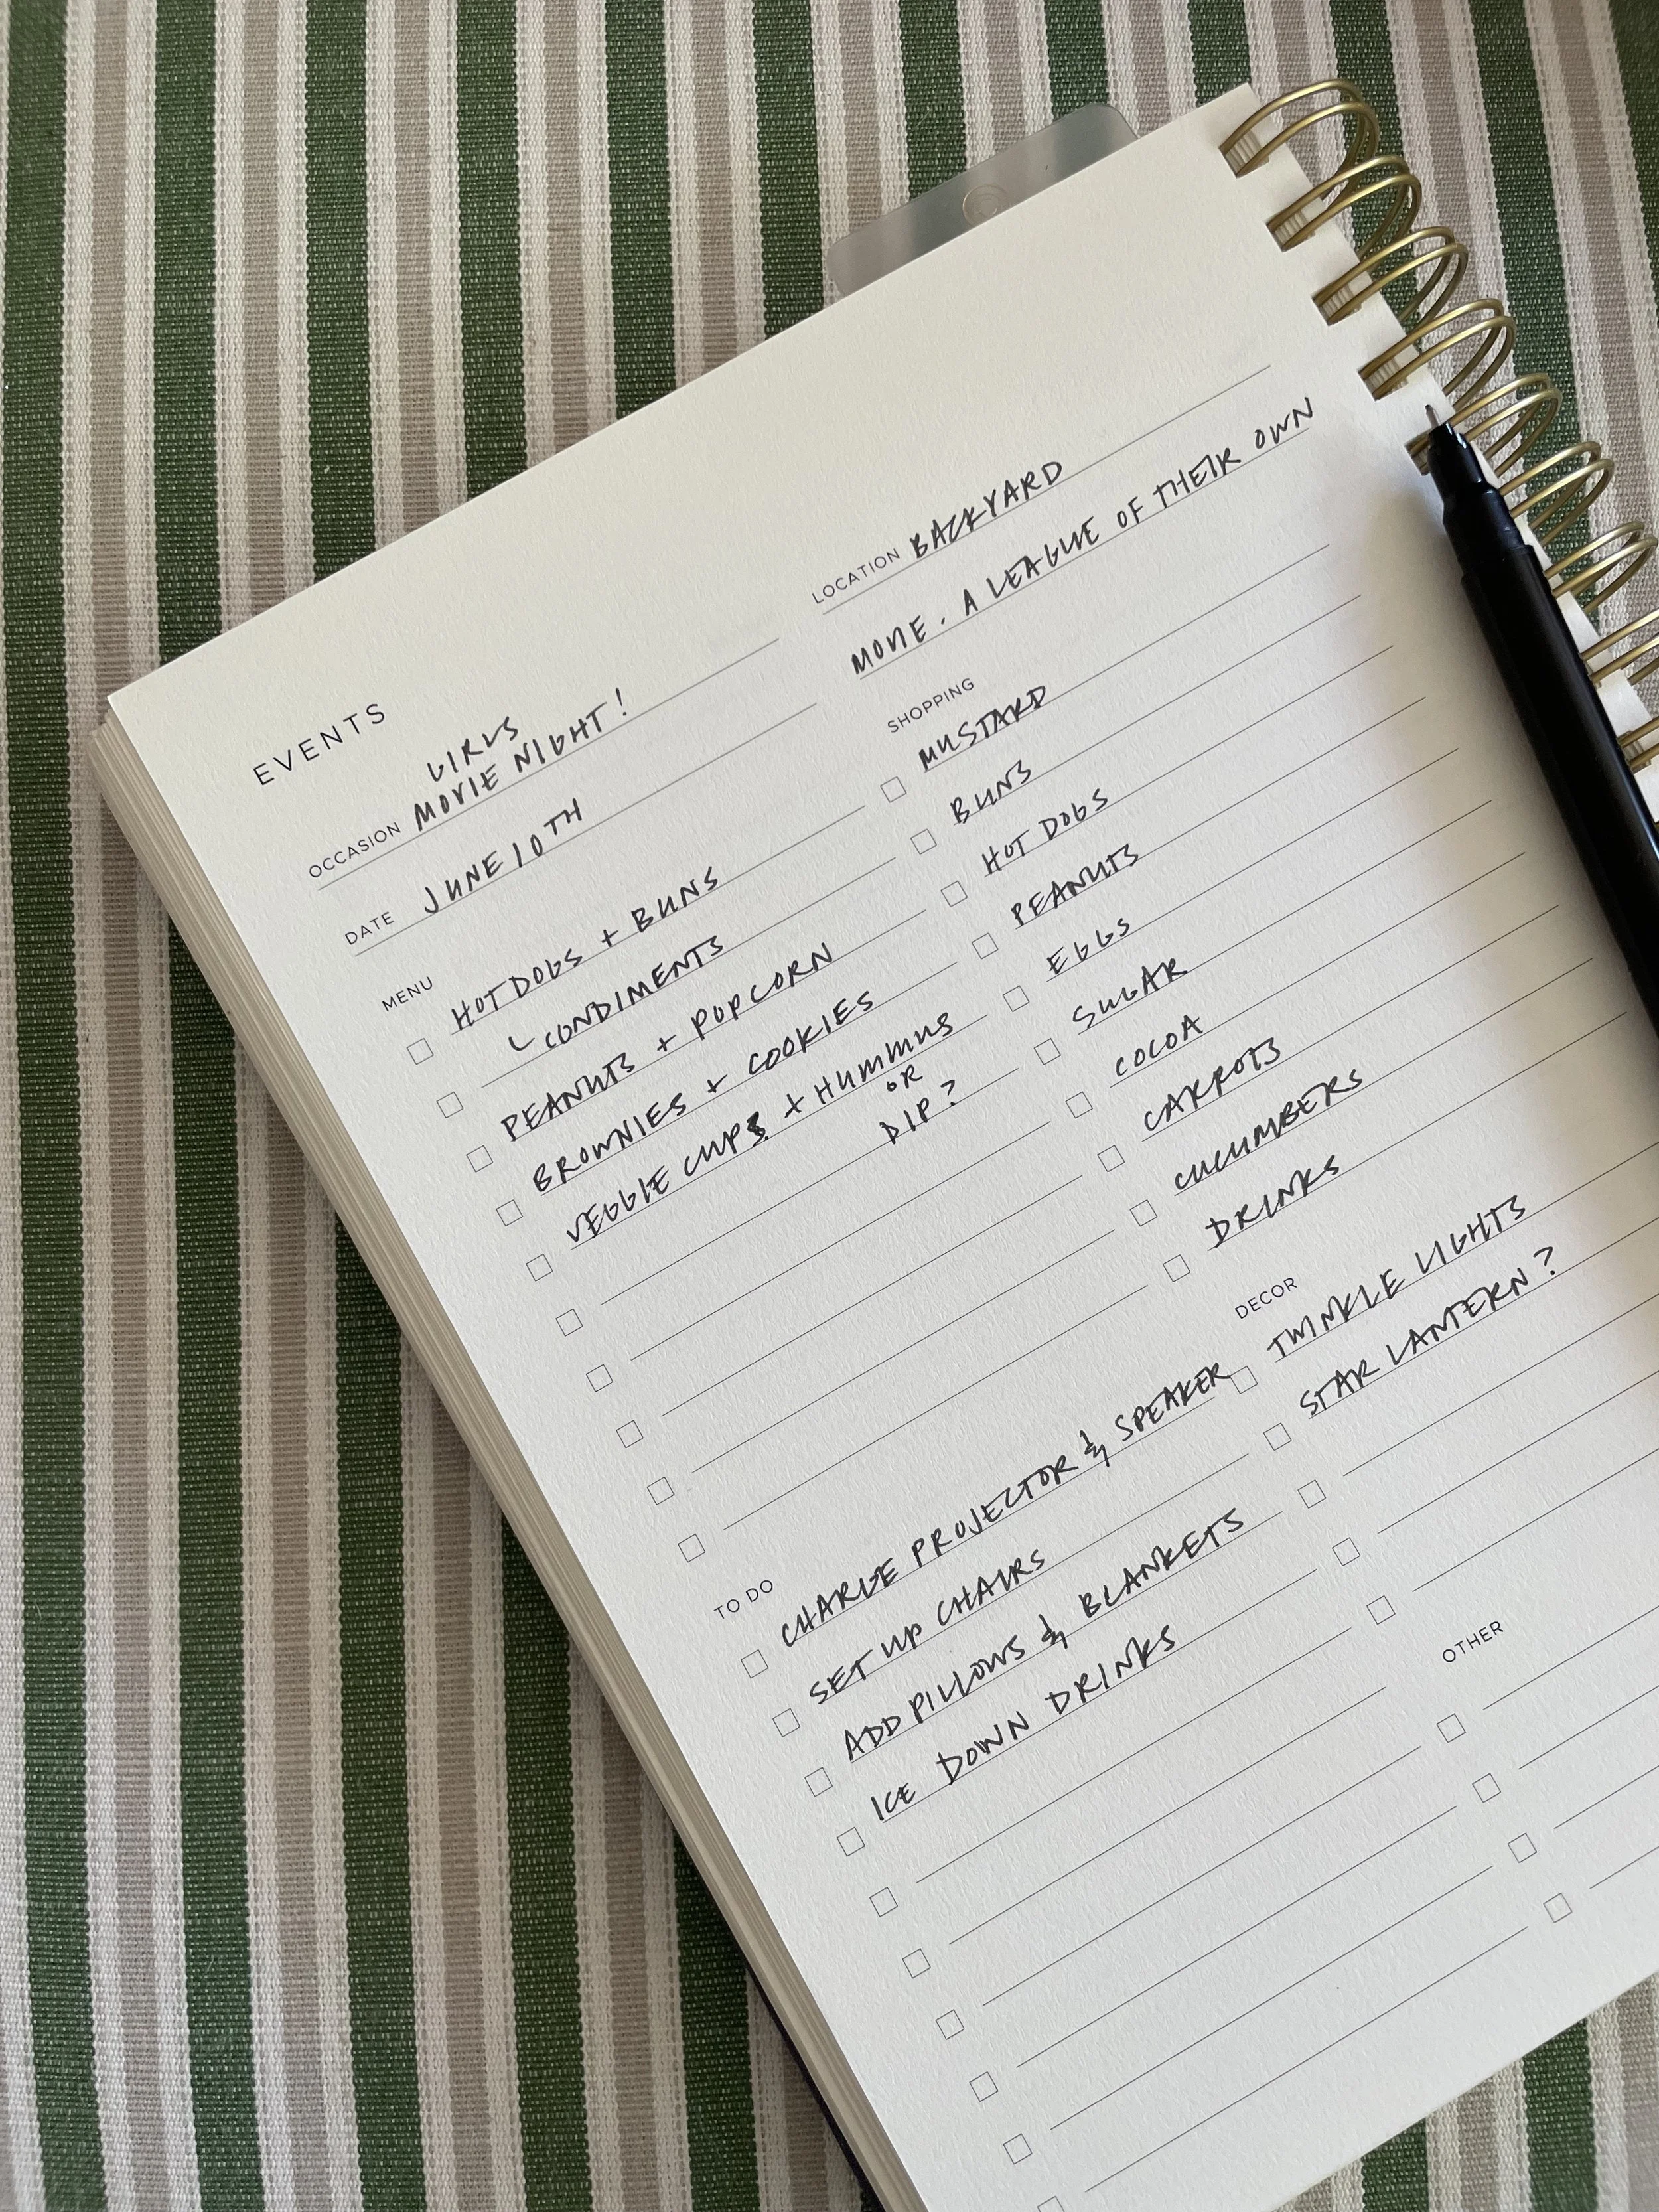 EVENTS
GIRLS
OCCASION MOVIE NIGHT!
DATE JUNE 10TH
LOCATION BACKYARD
MOVIE. A LEAGUE OF THEIR OWN
MENU
HOT DOGS + BUNS
CONDIMENTS
PEANUTS + POPCORN
BROWNIES + COOKIES
VEGGIE CUPS + HUMMUS
OR
DIP?
SHOPPING
MUSTARD
BUNS
HOT DOGS
PEANUTS
EGGS
SUGAR
COCOA
CARROTS
CUCUMBERS
DRINKS
TO DO
CHARGE PROJECTOR & SPEAKER
SET UP CHAIRS
ADD PILLOWS & BLANKETS
ICE DOWN DRINKS
DECOR
TWINKLE LIGHTS
STAR LANTERN?
OTHER